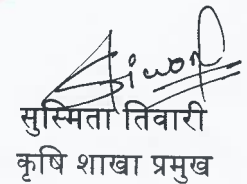 सुस्मिता तिवारी
कृषि शाखा प्रमुख